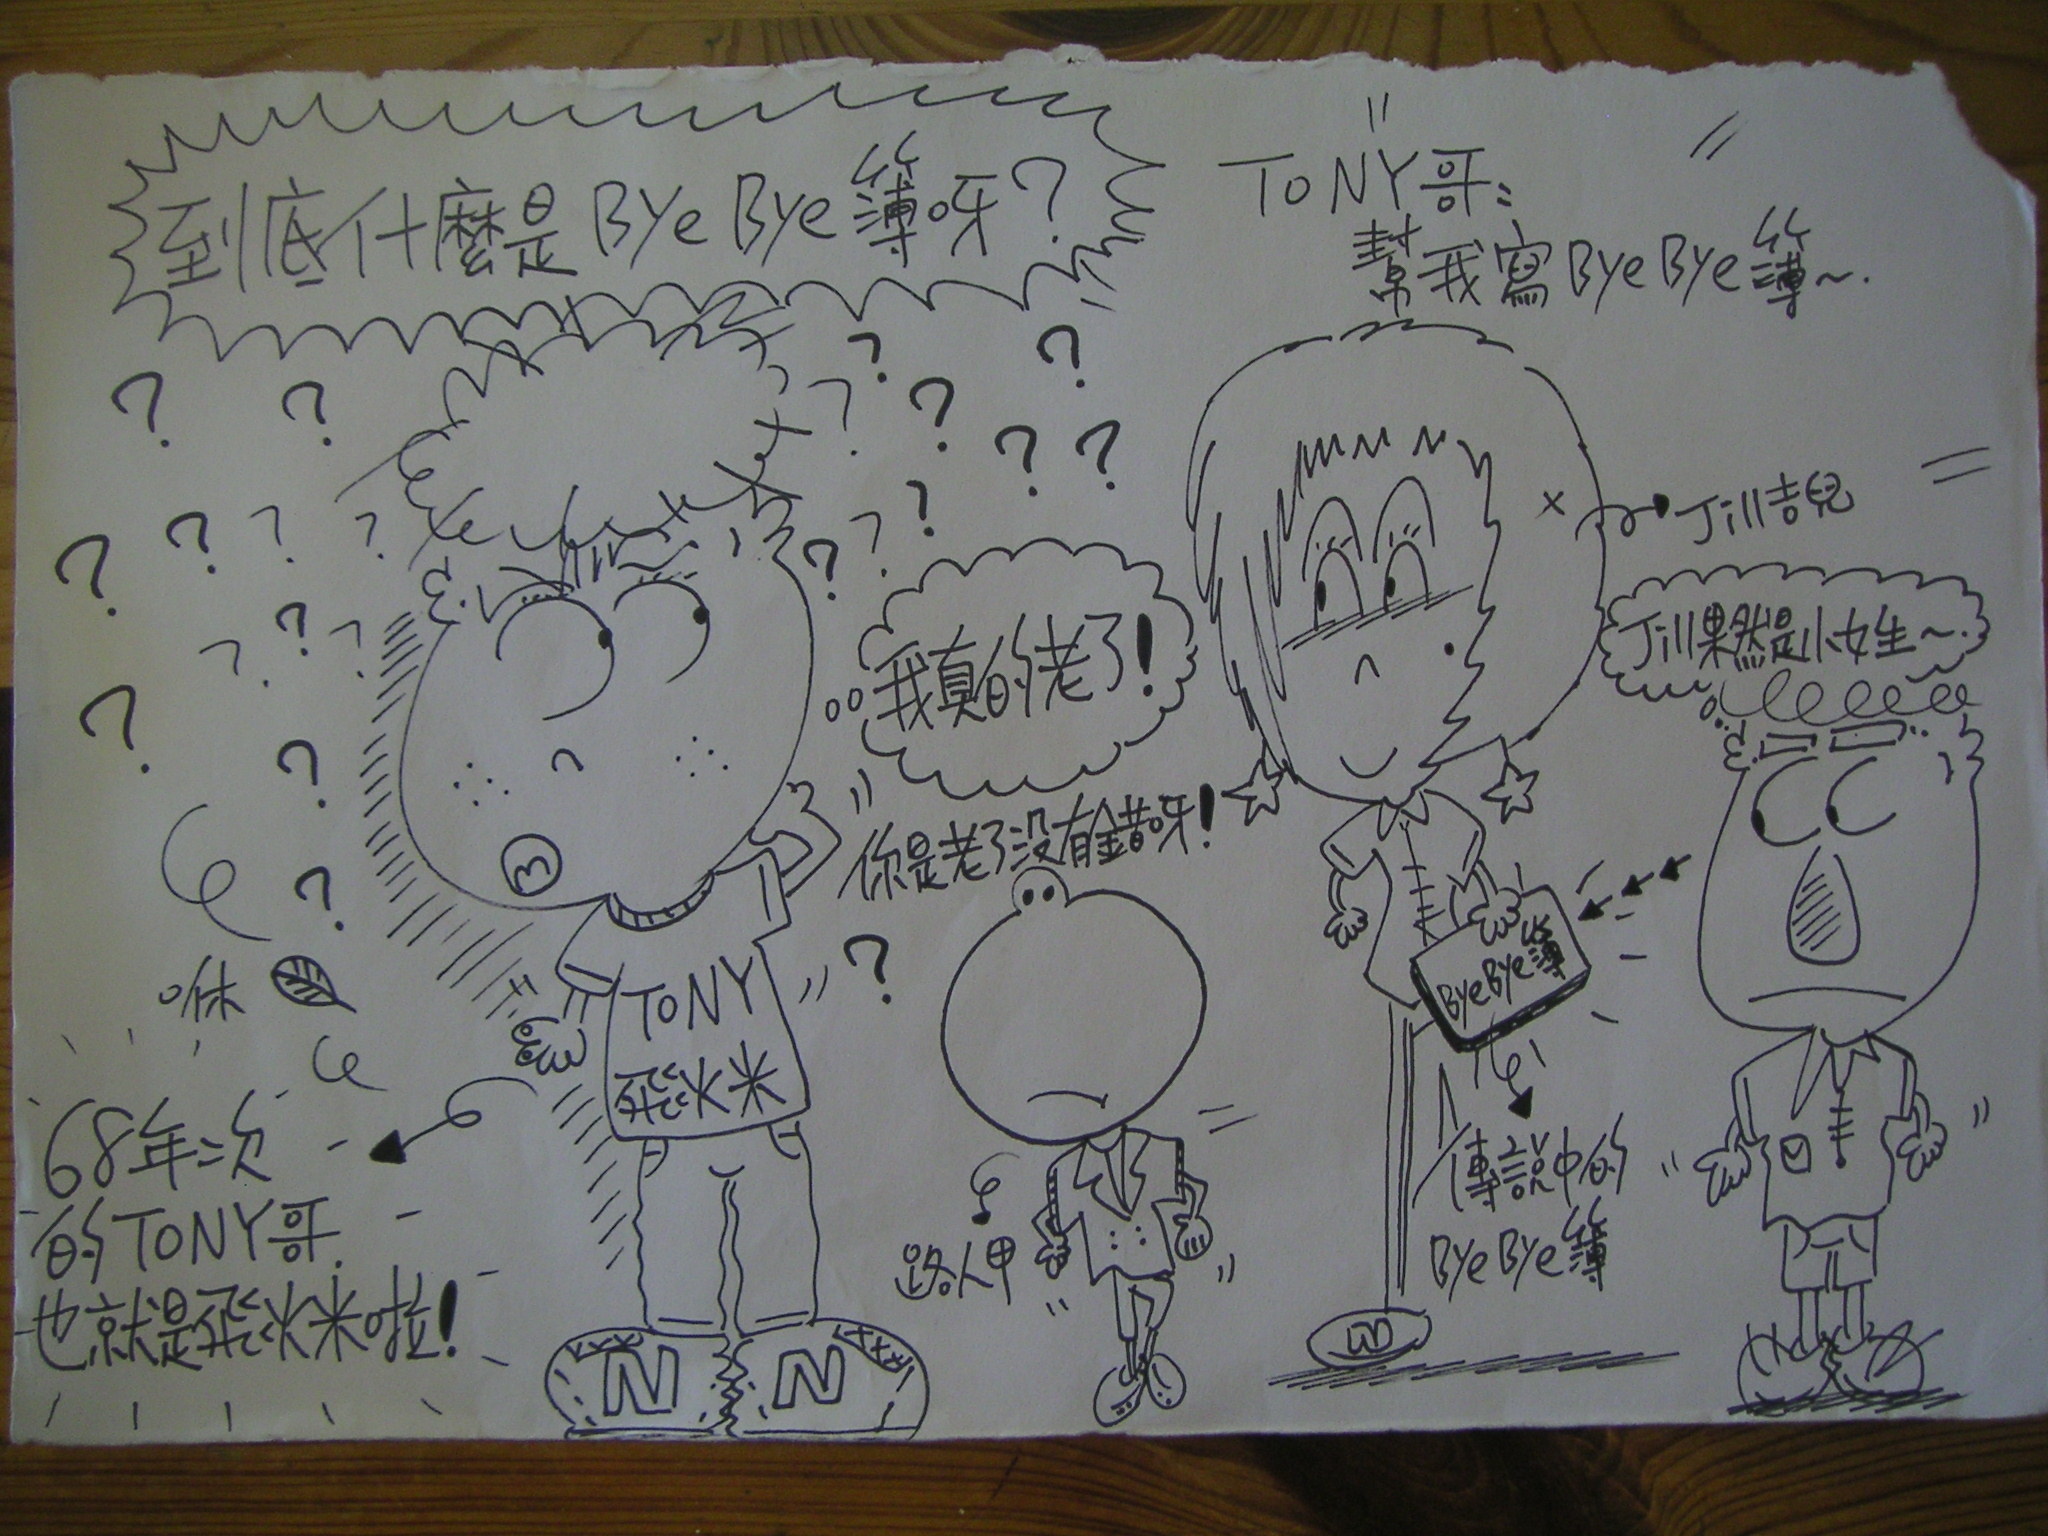 到底什麼是ByeBye簿呀?
TONY哥:
幫我寫ByeBye簿~.
Jill吉兒
Jill果然是小女生~.
我真的老了!
你是老了沒有錯呀!
ByeBye簿
咻
TONY
飛炏米
68年次
的TONY哥.
也就是飛炏米啦!
路人甲
傳說中的
ByeBye簿
N N